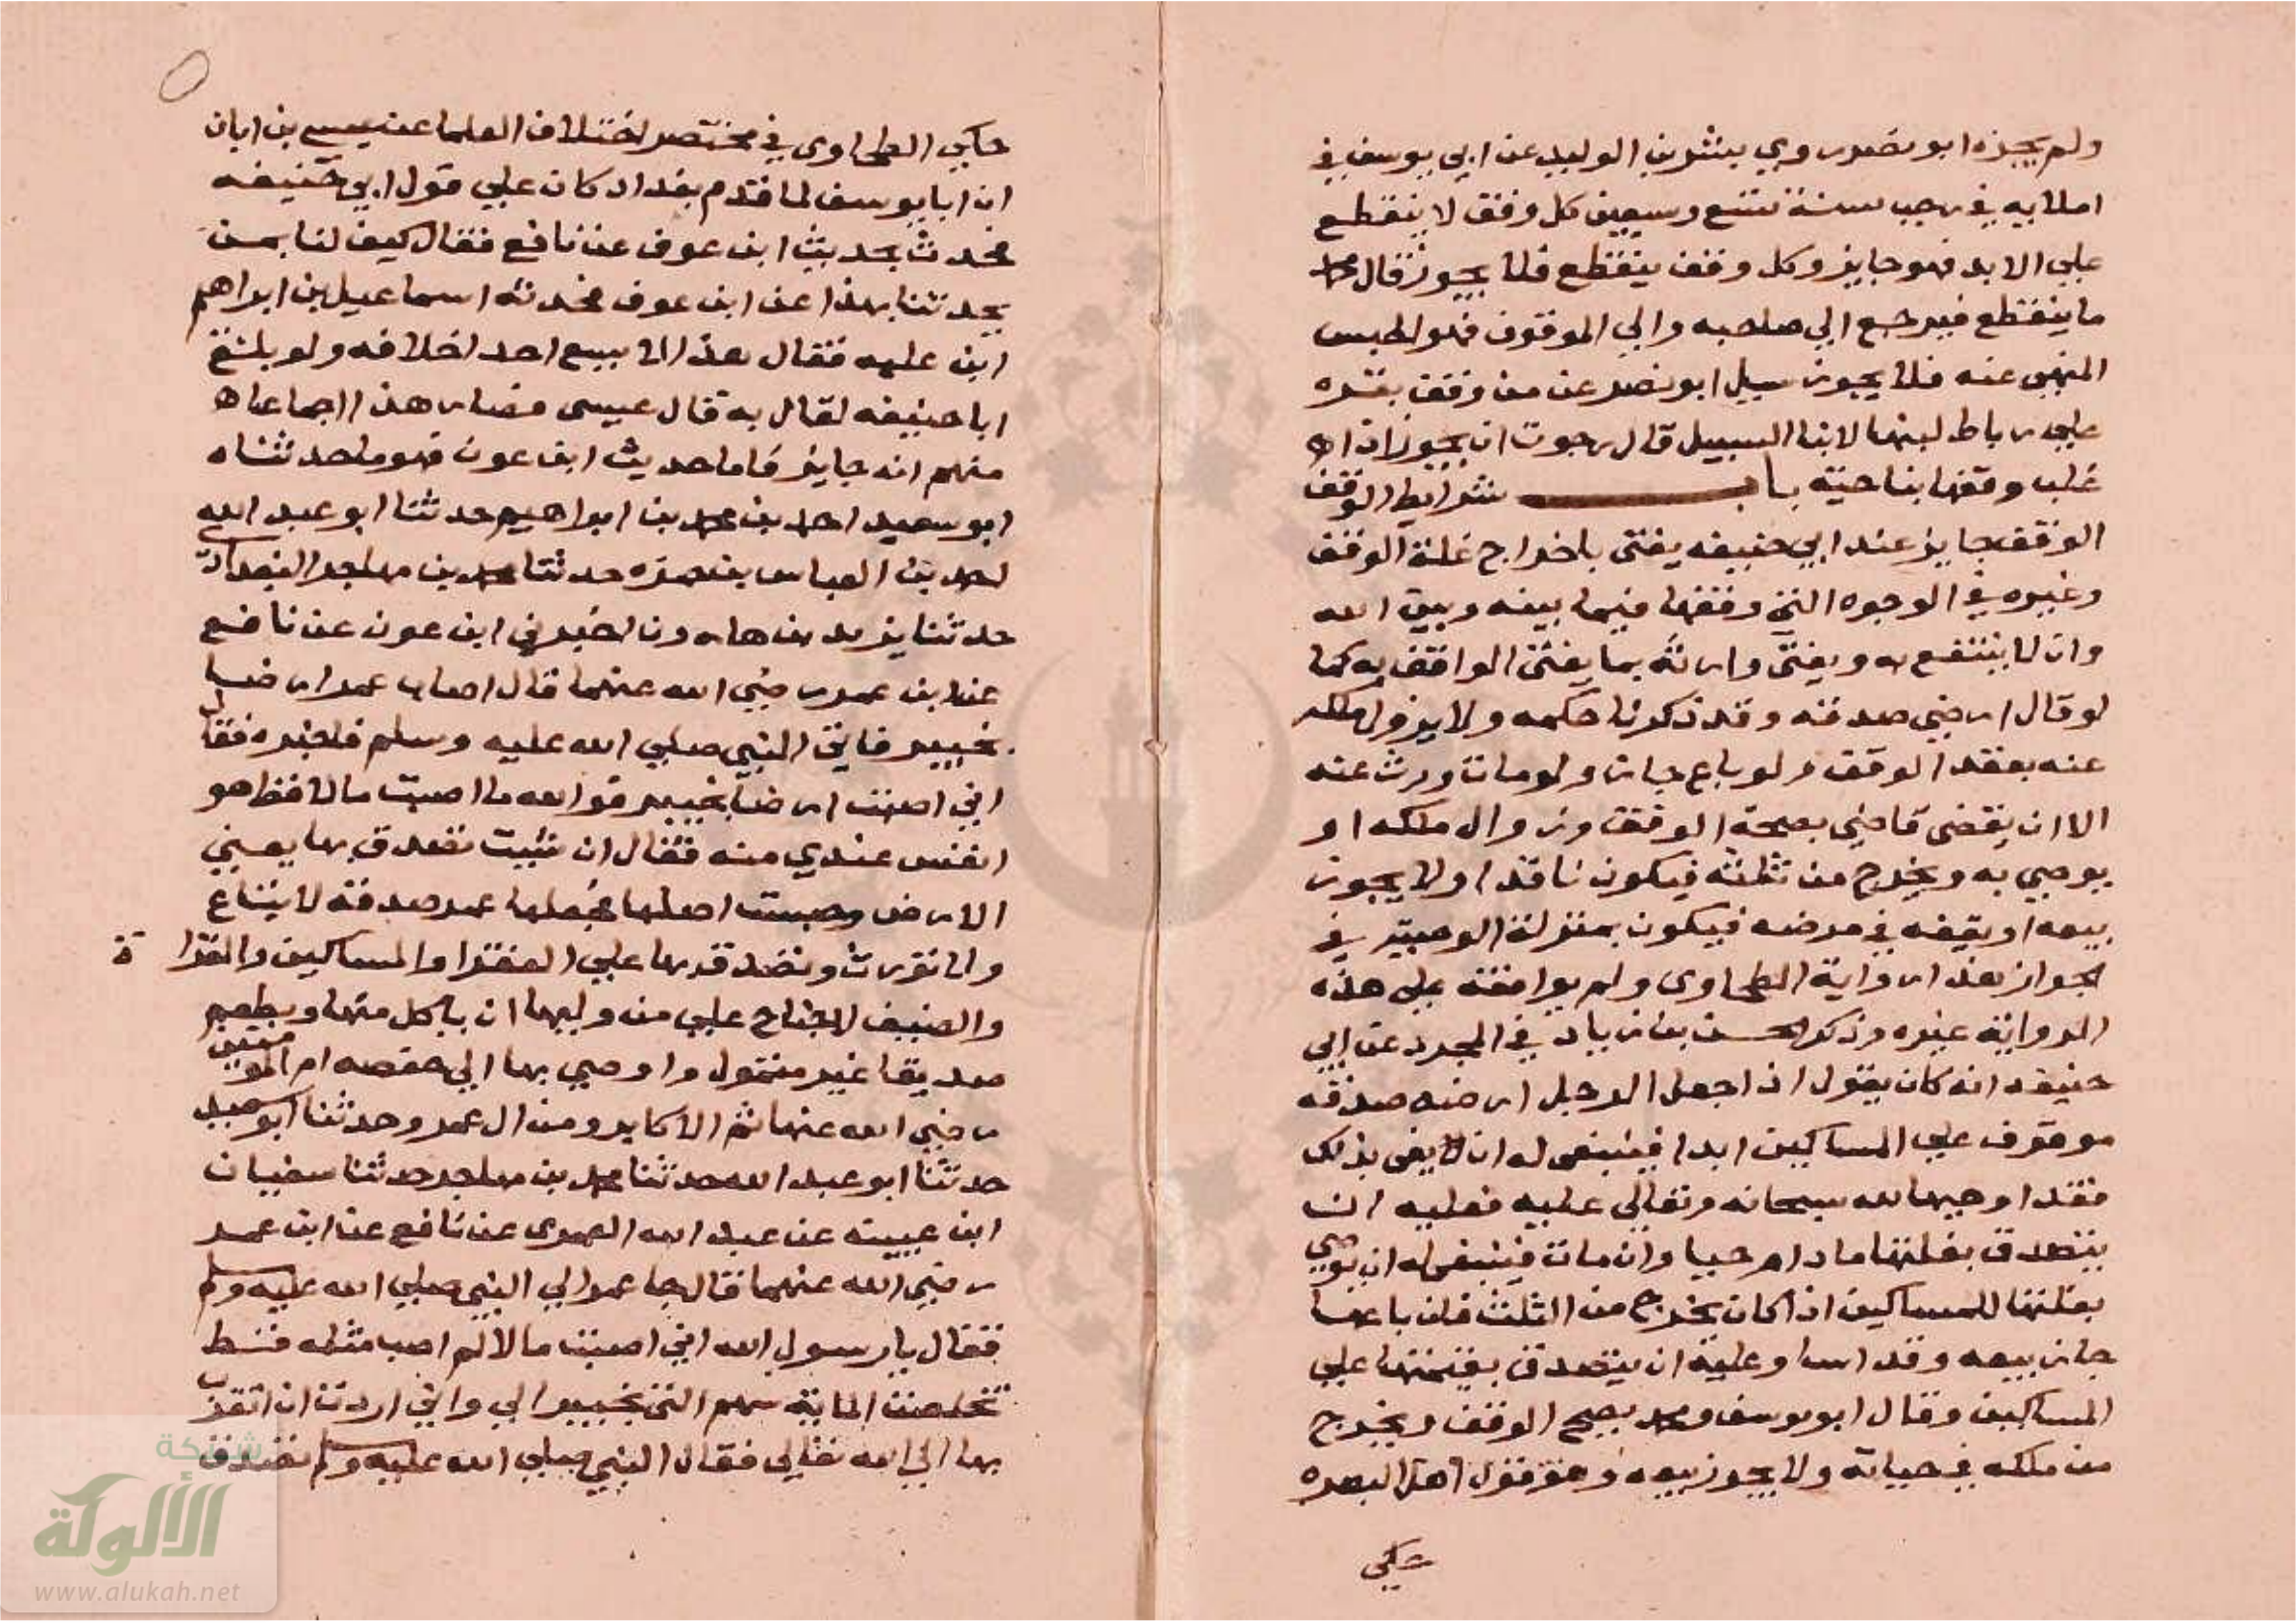 ولم يجزه ابو نصر وروي بشر بن الوليد عن ابي يوسف في
املايه في رجب سنة تسع وسبعين كل وقف لا ينقطع
علي الابد فهو جايز وكل وقف ينقطع فلا يجوز قال محمد
ما ينقطع فيرجع الي صاحبه والي الموقوف فهو الحبس
المنهي عنه فلا يجوز سيل ابو نصر عن من وقف بقره
علي رباط لبنها لابنا السبيل قال رجوت ان يجوز اذا
غلب وقفها بناحية باب شرايط الوقف
الوقف جايز عند ابي حنيفه يفتى باخراج غلة الوقف
وغيره في الوجوه التي وقفها فيما بينه وبين الله
وان لا ينتفع به ويفتي وارثه بما يفتى الواقف به كما
لو قال ارضي صدقه وقد ذكرنا حكمه ولا يزول ملكه
عنه بعقد الوقف ولو باع جاز ولو مات ورث عنه
الا ان يقضى قاضي بصحة الوقف وزوال ملكه او
يوصي به ويخرج من ثلثه فيكون نافذا ولا يجوز
بيعه او يقيفه في مرضه فيكون بمنزلة الوصية في
الجواز بهذا رواية الطحاوى ولم يوافقه على هذه
الرواية غيره وذكر الحسن بن زياد في المجرد عن ابي
حنيفه انه كان يقول اذا جعل الرجل ارضه صدقه
موقوف علي المساكين ابدا فينبغى له ان يفى بذلك
فقد اوجبها لله سبحانه وتعالي عليه فعليه ان
يتصدق بغلتها مادام حيا وان مات فينبغى له ان يوصي
بغلتها للمساكين اذا كان يخرج من الثلث فان باعها
جاز بيعه وقد اسا وعليه ان يتصدق بقيمتها علي
المساكين وقال ابو يوسف ومحمد يصح الوقف ويخرج
من ملكه في حياته ولا يجوز بيعه وهو قول اهل البصره
حكي
حكي الطحاوى في مختصر اختلاف العلما عن عيسى بن ابان
ان ابا يوسف لما قدم بغداد كان علي قول ابي حنيفه
فحدث بحديث ابن عوف عن نافع فقال كيف لنا بمن
يحدثنا بهذا عن ابن عوف فحدثه اسماعيل بن ابراهيم
ابن عليه فقال هذا لا يسع احد اخلافه ولو بلغ
ابا حنيفه لقال به قال عيسى فصار هذا اجماعا
منهم انه جايز فاما حديث ابن عون فهو ما حدثناه
ابو سعيد احمد بن محمد بن ابراهيم حدثنا ابو عبد الله
احمد بن العباس بن حمزه حدثنا محمد بن مهاجر البغدادي
حدثنا يزيد بن هارون اخبرني ابن عون عن نافع
عن ابن عمر رضي الله عنهما قال اصاب عمر ارضا
بخيبر فاتي النبي صلي الله عليه وسلم فاخبره فقال
اني اصبت ارضا بخيبر فوالله ما اصبت مالا قط هو
انفس عندي منه فقال ان شيت تصدق بها يعني
الارض وحبست اصلها فجعلها عمر صدقة لا يتباع
ولا تورث وتصدق بها علي الفقرا والمساكين والغزاة
والضيف لا جناح علي من وليها ان ياكل منها ويطعم
صديقا غير متمول واوصي بها الي حفصه ام المومنين
رضي الله عنها ثم الاكابر ومن ال عمر وحدثنا ابو سعيد
حدثنا ابو عبد الله حدثنا محمد بن مهاجر حدثنا سفيان
ابن عيينه عن عبد الله العمرى عن نافع عن ابن عمر
رضي الله عنهما قال جا عمر الي النبي صلي الله عليه وسلم
فقال يا رسول الله اني اصبت مالا لم اصب مثله قط
تخلصت الماية سهم التي بخيبر الي واني اردت ان اتقرب
بها الي الله تعالي فقال النبي صلي الله عليه وسلم تصدق
شبكة
الألوكة
www.alukah.net